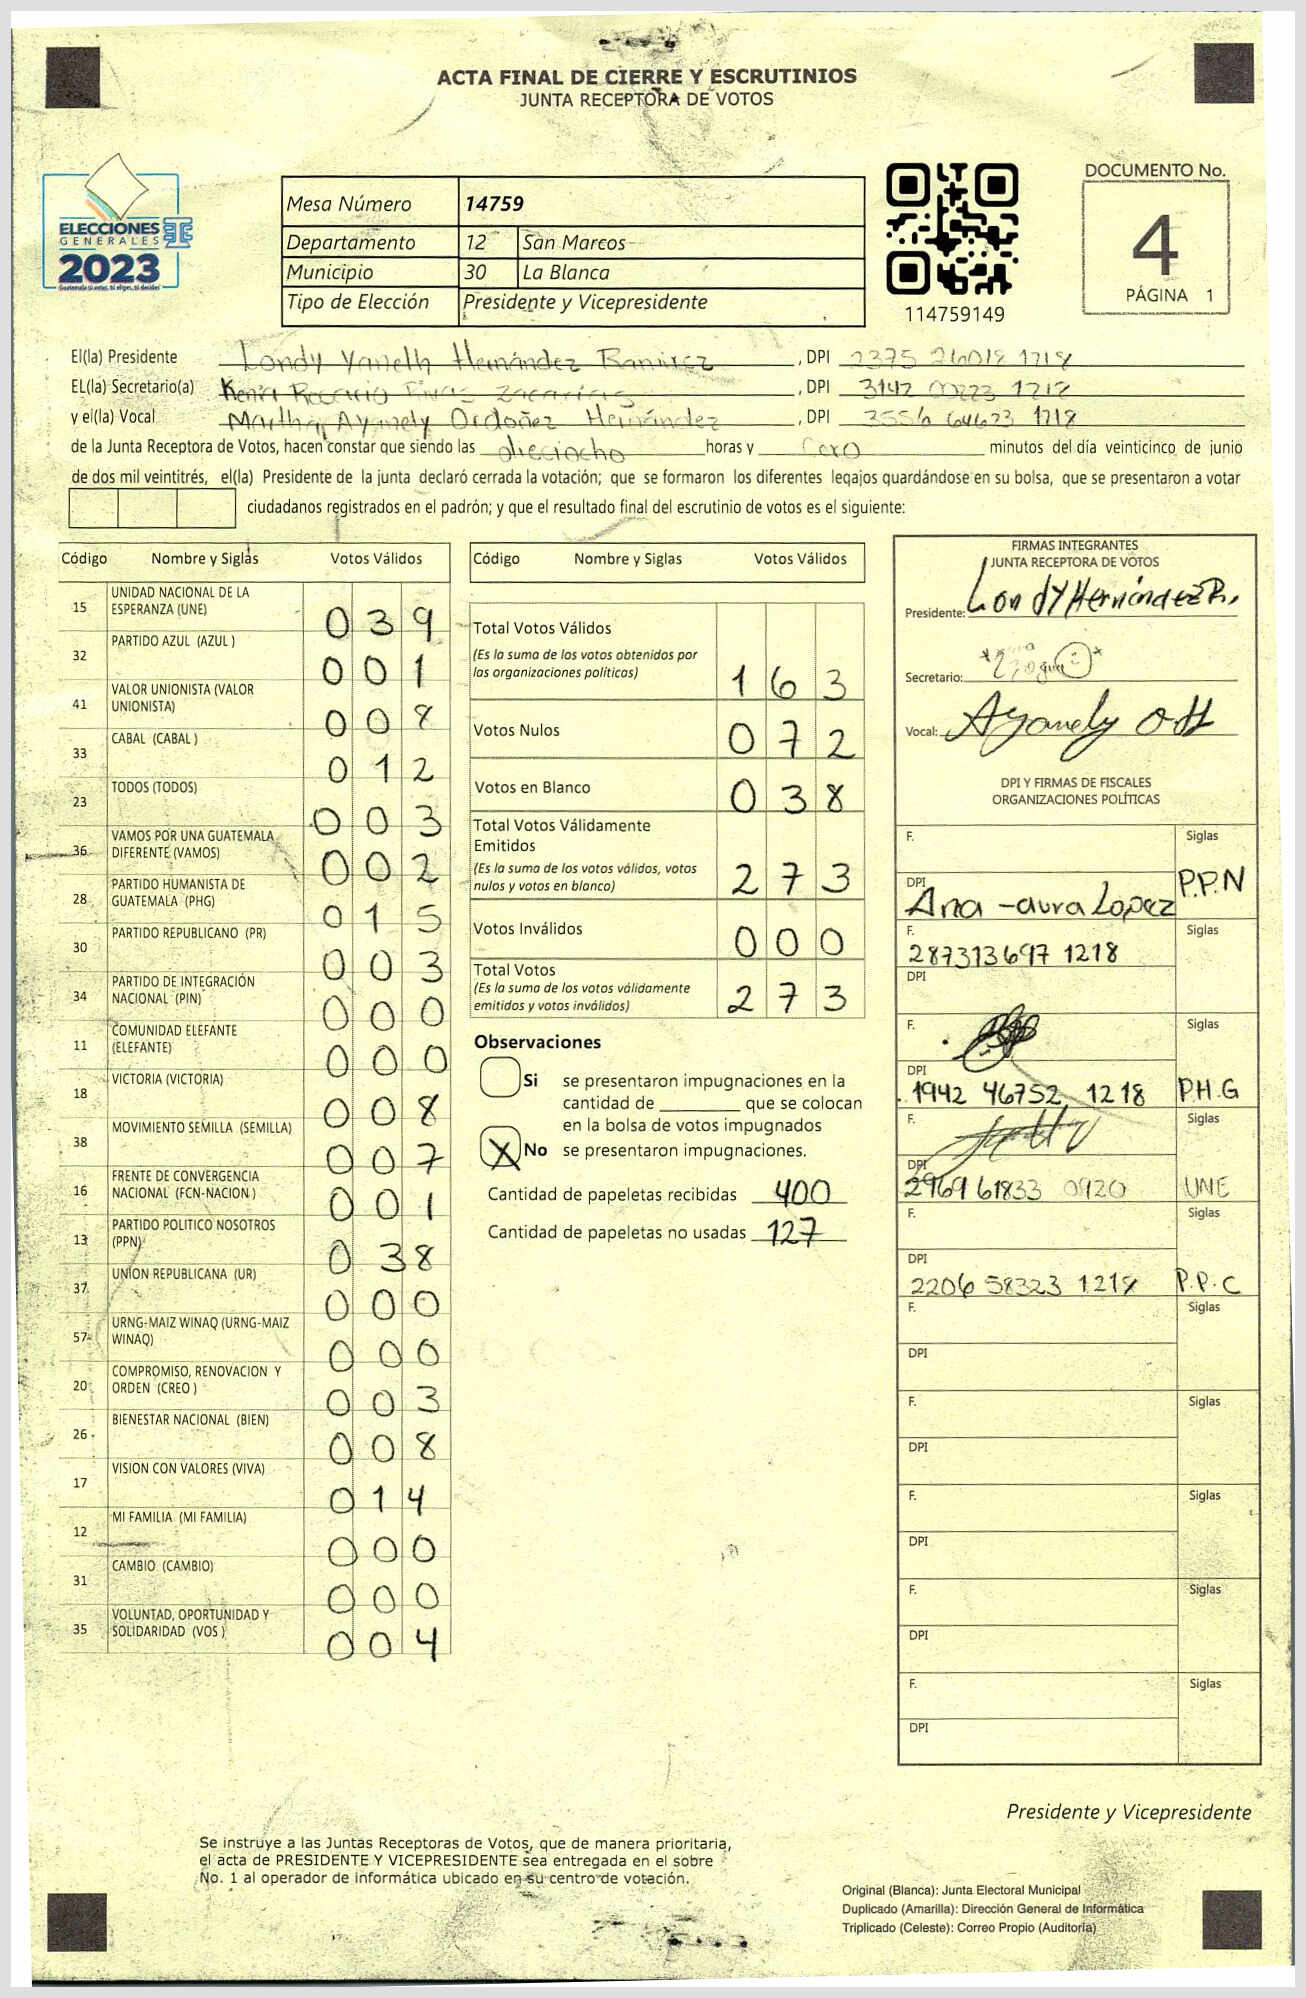 ACTA FINAL DE CIERRE Y ESCRUTINIOS
JUNTA RECEPTORA DE VOTOS
ELECCIONES
GENERALES
2023
DOCUMENTO No.
4
PÁGINA 1
Mesa Número 14759
Departamento 12 San Marcos
Municipio 30 La Blanca
Tipo de Elección Presidente y Vicepresidente
114759149
El(la) Presidente Londy Yaneth Hernández Ramirez, DPI 2375 26018 1218
EL(la) Secretario(a) Rosario, DPI 3142 00223 1218
y el(la) Vocal Martha Ayanely Ordoñez Hernández, DPI 3556 64623 1218
de la Junta Receptora de Votos, hacen constar que siendo las dieciocho horas y cero minutos del día veinticinco de junio
de dos mil veintitrés, el(la) Presidente de la junta declaró cerrada la votación; que se formaron los diferentes legajos guardándose en su bolsa, que se presentaron a votar
ciudadanos registrados en el padrón; y que el resultado final del escrutinio de votos es el siguiente:
Código Nombre y Siglas Votos Válidos
15 UNIDAD NACIONAL DE LA ESPERANZA (UNE) 039
32 PARTIDO AZUL (AZUL ) 001
41 VALOR UNIONISTA (VALOR UNIONISTA) 008
33 CABAL (CABAL ) 012
23 TODOS (TODOS) 003
36 VAMOS POR UNA GUATEMALA DIFERENTE (VAMOS) 002
28 PARTIDO HUMANISTA DE GUATEMALA (PHG) 015
30 PARTIDO REPUBLICANO (PR) 003
34 PARTIDO DE INTEGRACIÓN NACIONAL (PIN) 000
11 COMUNIDAD ELEFANTE (ELEFANTE) 000
18 VICTORIA (VICTORIA) 008
38 MOVIMIENTO SEMILLA (SEMILLA) 007
16 FRENTE DE CONVERGENCIA NACIONAL (FCN-NACION ) 001
13 PARTIDO POLITICO NOSOTROS (PPN) 038
37 UNION REPUBLICANA (UR) 000
57 URNG-MAIZ WINAQ (URNG-MAIZ WINAQ) 000
20 COMPROMISO, RENOVACION Y ORDEN (CREO ) 003
26 BIENESTAR NACIONAL (BIEN) 008
17 VISION CON VALORES (VIVA) 014
12 MI FAMILIA (MI FAMILIA) 000
31 CAMBIO (CAMBIO) 000
35 VOLUNTAD, OPORTUNIDAD Y SOLIDARIDAD (VOS ) 004
Código Nombre y Siglas Votos Válidos
Total Votos Válidos
(Es la suma de los votos obtenidos por
las organizaciones políticas) 163
Votos Nulos 072
Votos en Blanco 038
Total Votos Válidamente
Emitidos
(Es la suma de los votos válidos, votos
nulos y votos en blanco) 273
Votos Inválidos 000
Total Votos
(Es la suma de los votos válidamente
emitidos y votos inválidos) 273
Observaciones
Si se presentaron impugnaciones en la
cantidad de ________ que se colocan
en la bolsa de votos impugnados
X No se presentaron impugnaciones.
Cantidad de papeletas recibidas 400
Cantidad de papeletas no usadas 127
FIRMAS INTEGRANTES
JUNTA RECEPTORA DE VOTOS
Presidente: Londy Hernández R.
Secretario:
Vocal: Ayanely
DPI Y FIRMAS DE FISCALES
ORGANIZACIONES POLÍTICAS
F. Siglas
DPI Ana Lopez P.P.N
F. 28731369 1218 Siglas
DPI
F. Siglas
DPI 1942 46752 1218 P.H.G
F. Siglas
DPI 2969 61833 0920 UNE
F. Siglas
DPI 2206 58323 1218 P.P.C
F. Siglas
DPI
F. Siglas
DPI
F. Siglas
DPI
F. Siglas
DPI
F. Siglas
DPI
Presidente y Vicepresidente
Se instruye a las Juntas Receptoras de Votos, que de manera prioritaria,
el acta de PRESIDENTE Y VICEPRESIDENTE sea entregada en el sobre
No. 1 al operador de informática ubicado en su centro de votación.
Original (Blanca): Junta Electoral Municipal
Duplicado (Amarilla): Dirección General de Informática
Triplicado (Celeste): Correo Propio (Auditoría)